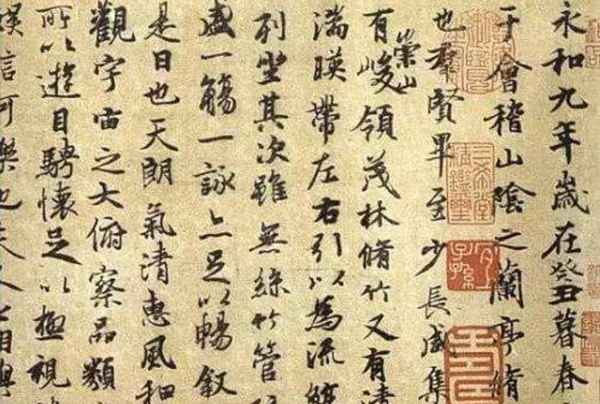 永和九年歲在癸丑暮春
于會稽山陰之蘭亭脩
也羣賢畢至少長咸集
有崇山峻領茂林脩竹又有清
湍暎帶左右引以為流觴
列坐其次雖無絲竹管
盛一觴一詠亦足以暢敘
是日也天朗氣清惠風和
觀宇宙之大俯察品類
所以遊目騁懷足以極視
娛信可樂也夫人之相與